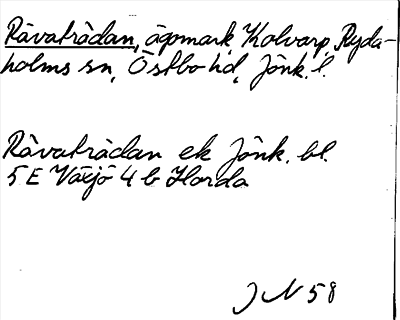 Råvatrådan, ägomark, Kolvarp, Ryda-
holms sn, Östbo hd, Jönk. l.
Råvatrådan ek Jönk. bl.
5 E Växjö 4 b Horda
J N 58